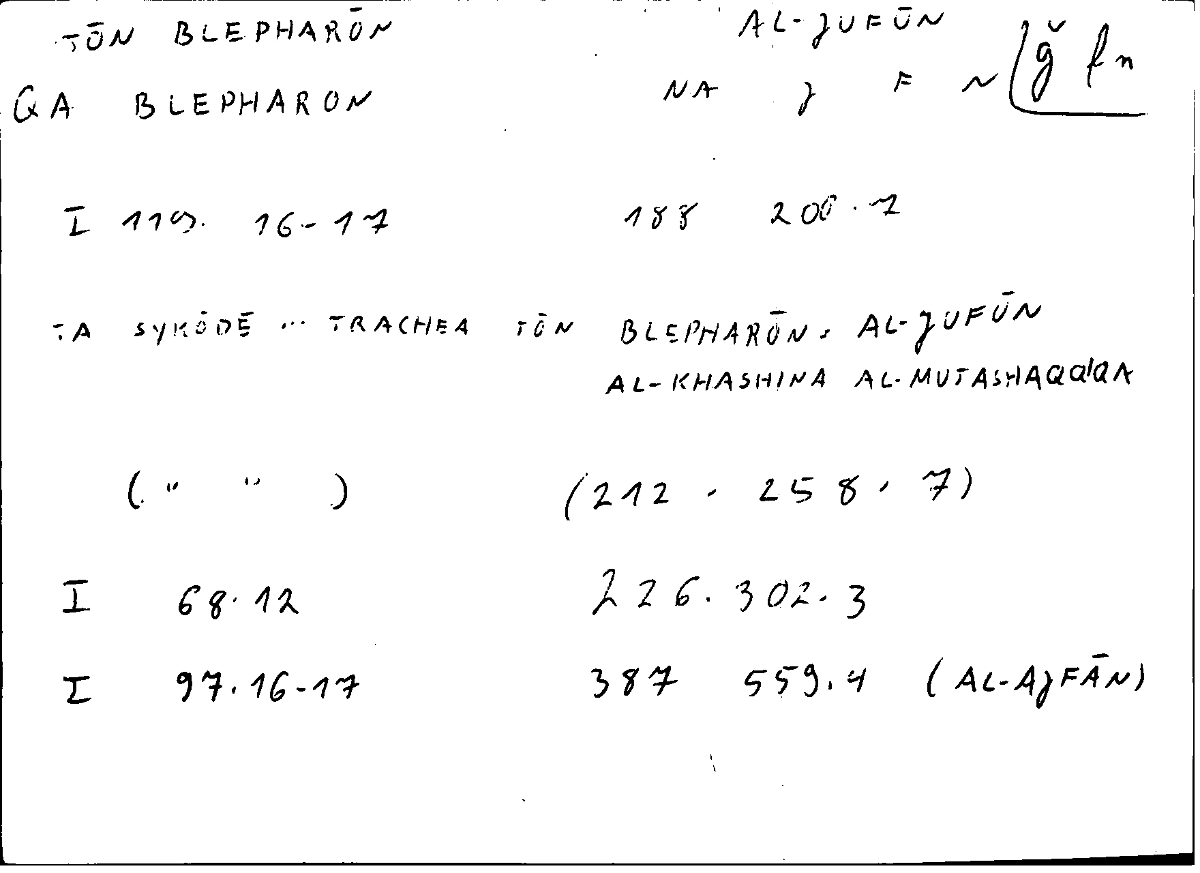 TŌN BLEPHARŌN AL-JUFŪN
QA BLEPHARON NA J F N ǧ f n
I 119. 16-17 188 200.7
TA SYKŌDĒ ... TRACHEA TŌN BLEPHARŌN. AL-JUFŪN
AL-KHASHINA AL-MUTASHAQQIQA
( " " ) (212 . 258 . 7)
I 68.12 226.302.3
I 97.16-17 387 559.4 (AL-AJFĀN)